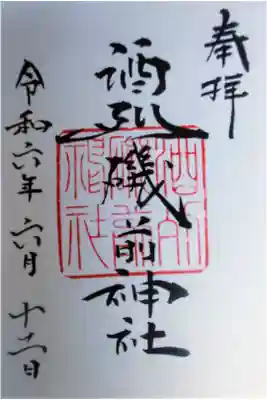 奉拝
酒列磯前神社
酒列磯前神社
令和六年六月